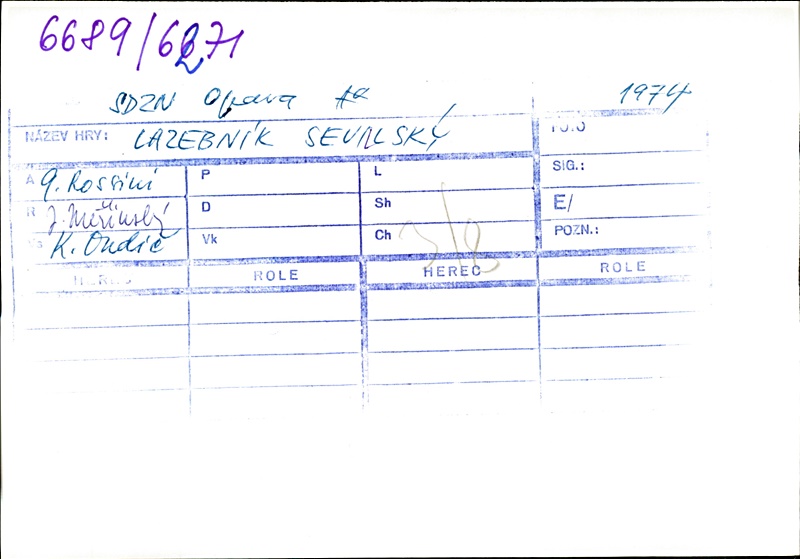 6689/6271
SDZN Opava 1974
NÁZEV HRY: LAZEBNÍK SEVILSKÝ
A G. Rossini P L SIG.:
R D Sh E/
K. Ondič Vk Ch POZN.:
HEREC ROLE HEREC ROLE